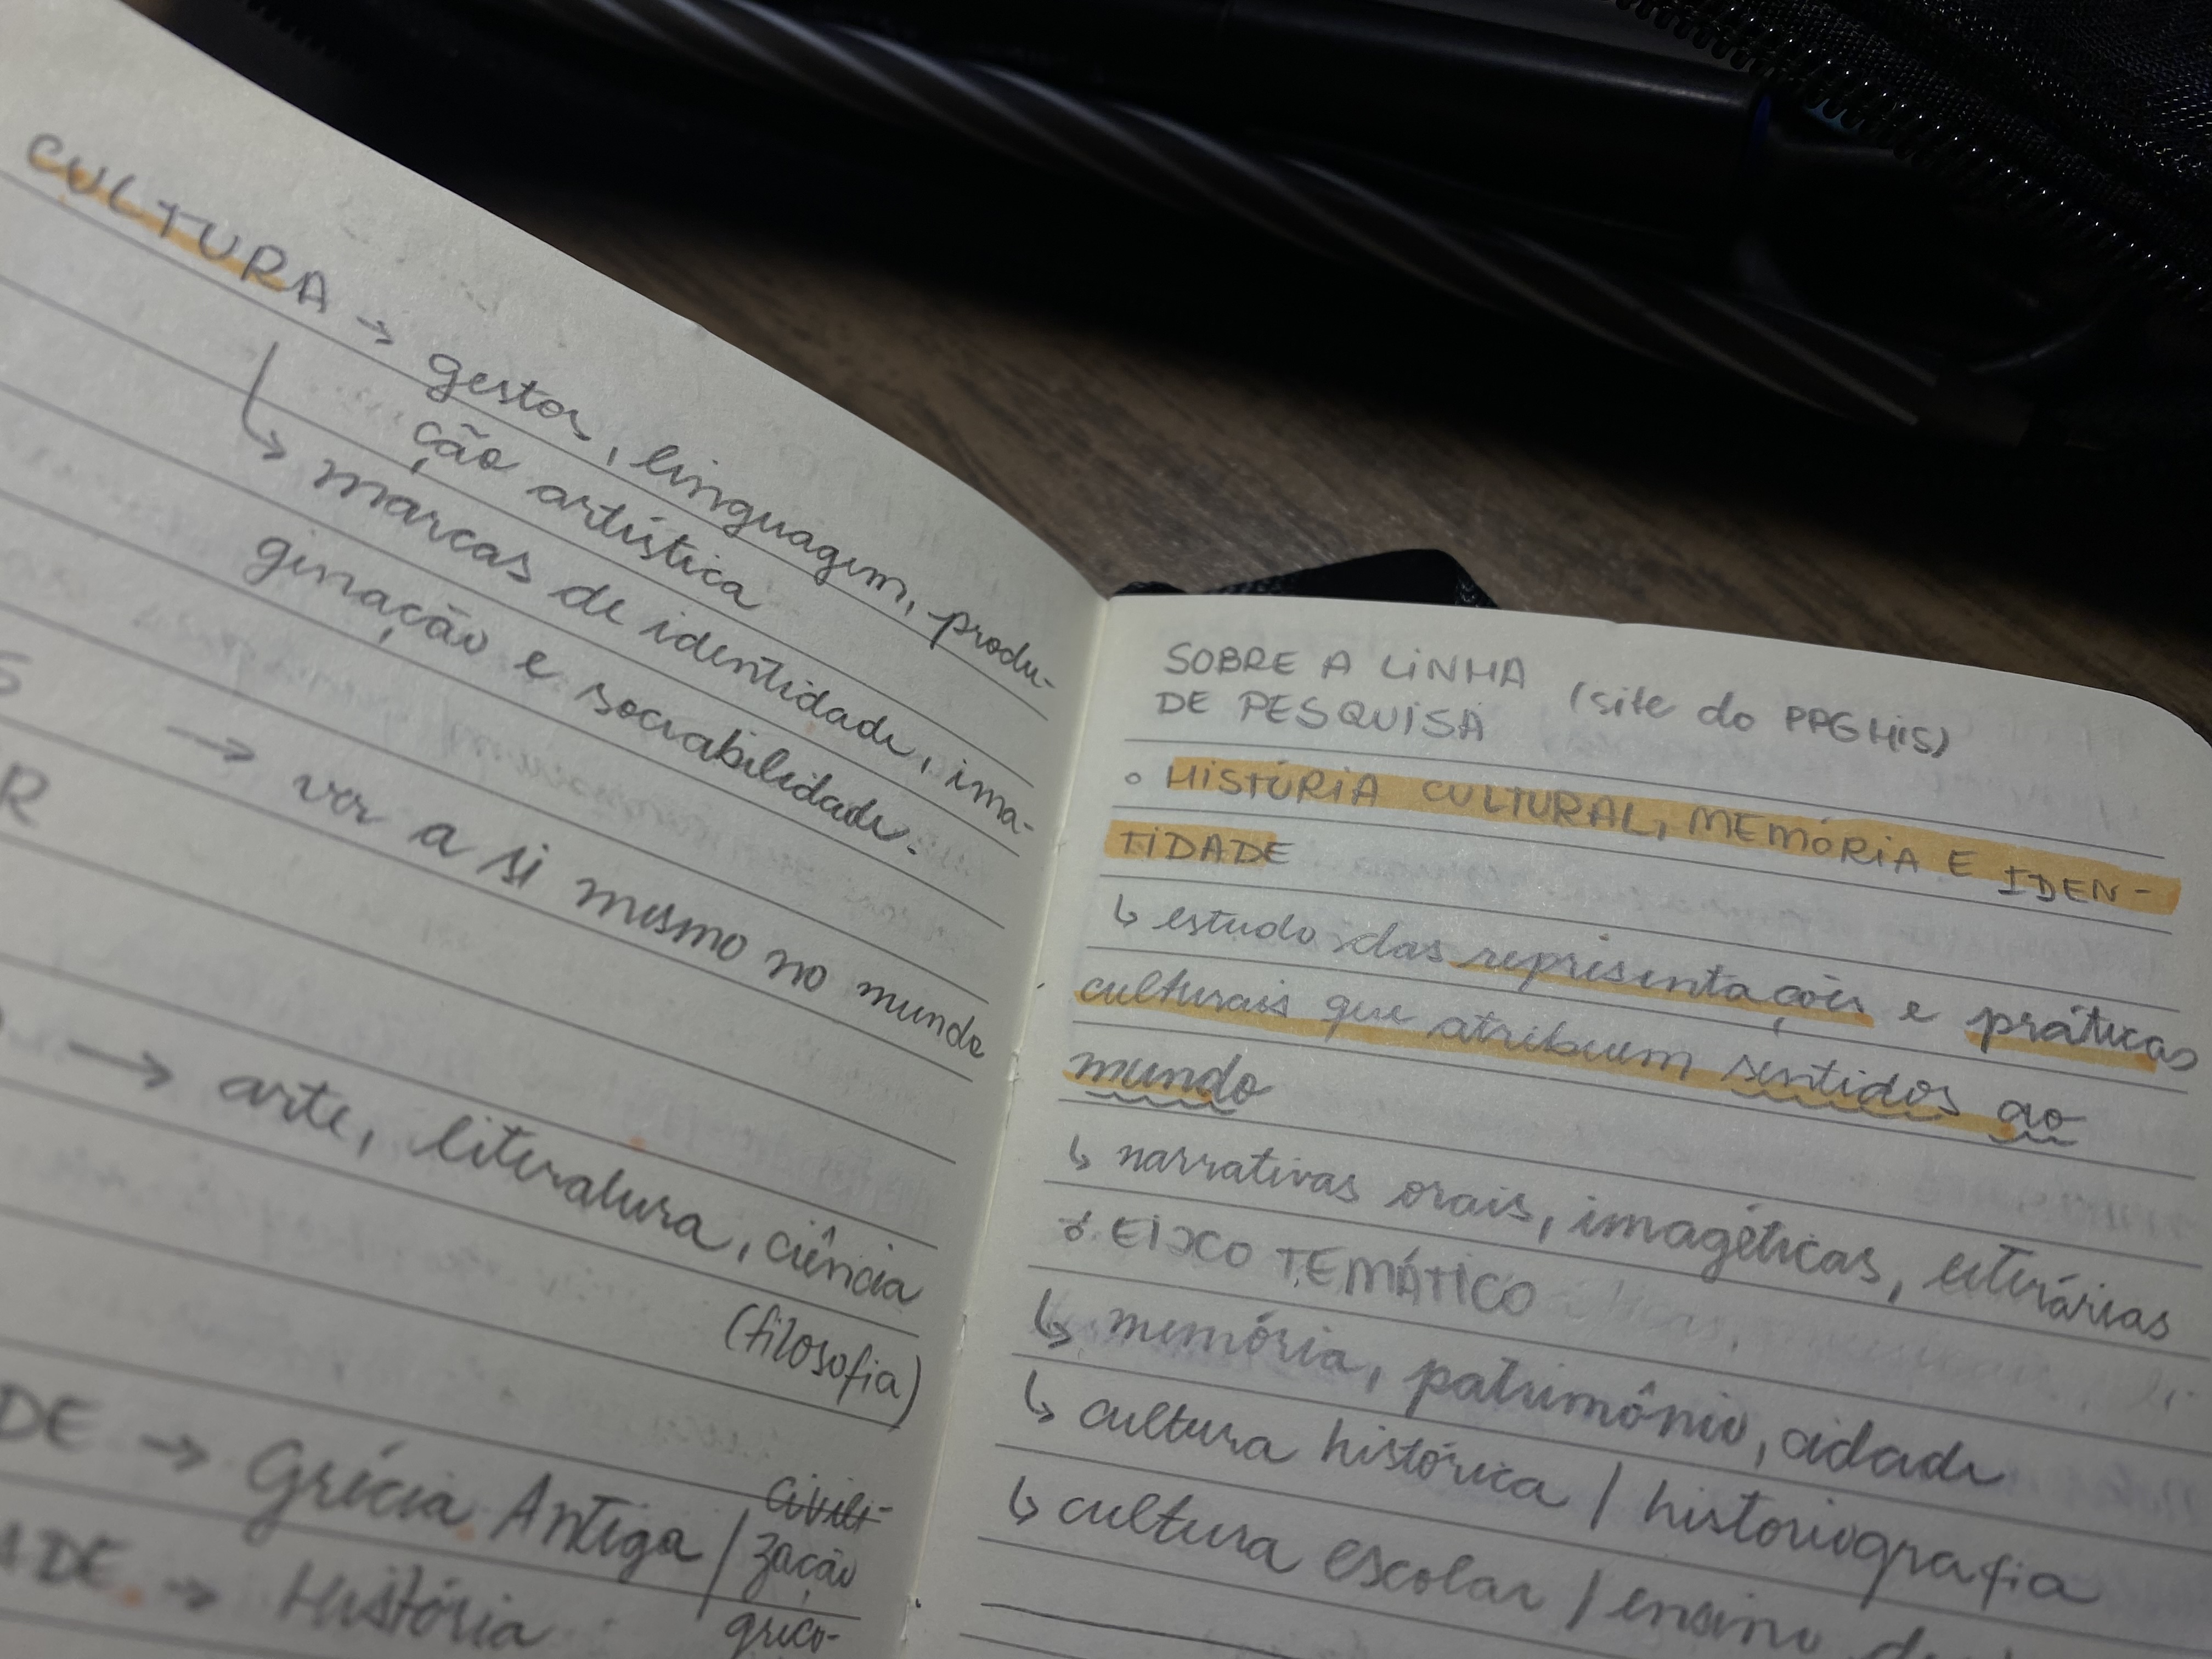 CULTURA → gestos, linguagem, produ-
ção artística
↳ marcas de identidade, ima-
ginação e sociabilidade.
S
R → ver a si mesmo no mundo
→ arte, literatura, ciência
(filosofia)
DE → Grécia Antiga / civili-
zação
greco-
ADE → História
SOBRE A LINHA (site do PPGHIS)
DE PESQUISA
◦ HISTÓRIA CULTURAL, MEMÓRIA E IDEN-
TIDADE
↳ estudo das representações e práticas
culturais que atribuem sentidos ao
mundo
↳ narrativas orais, imagéticas, literárias
EIXO TEMÁTICO
↳ memória, patrimônio, cidade
↳ cultura histórica / historiografia
↳ cultura escolar / ensino